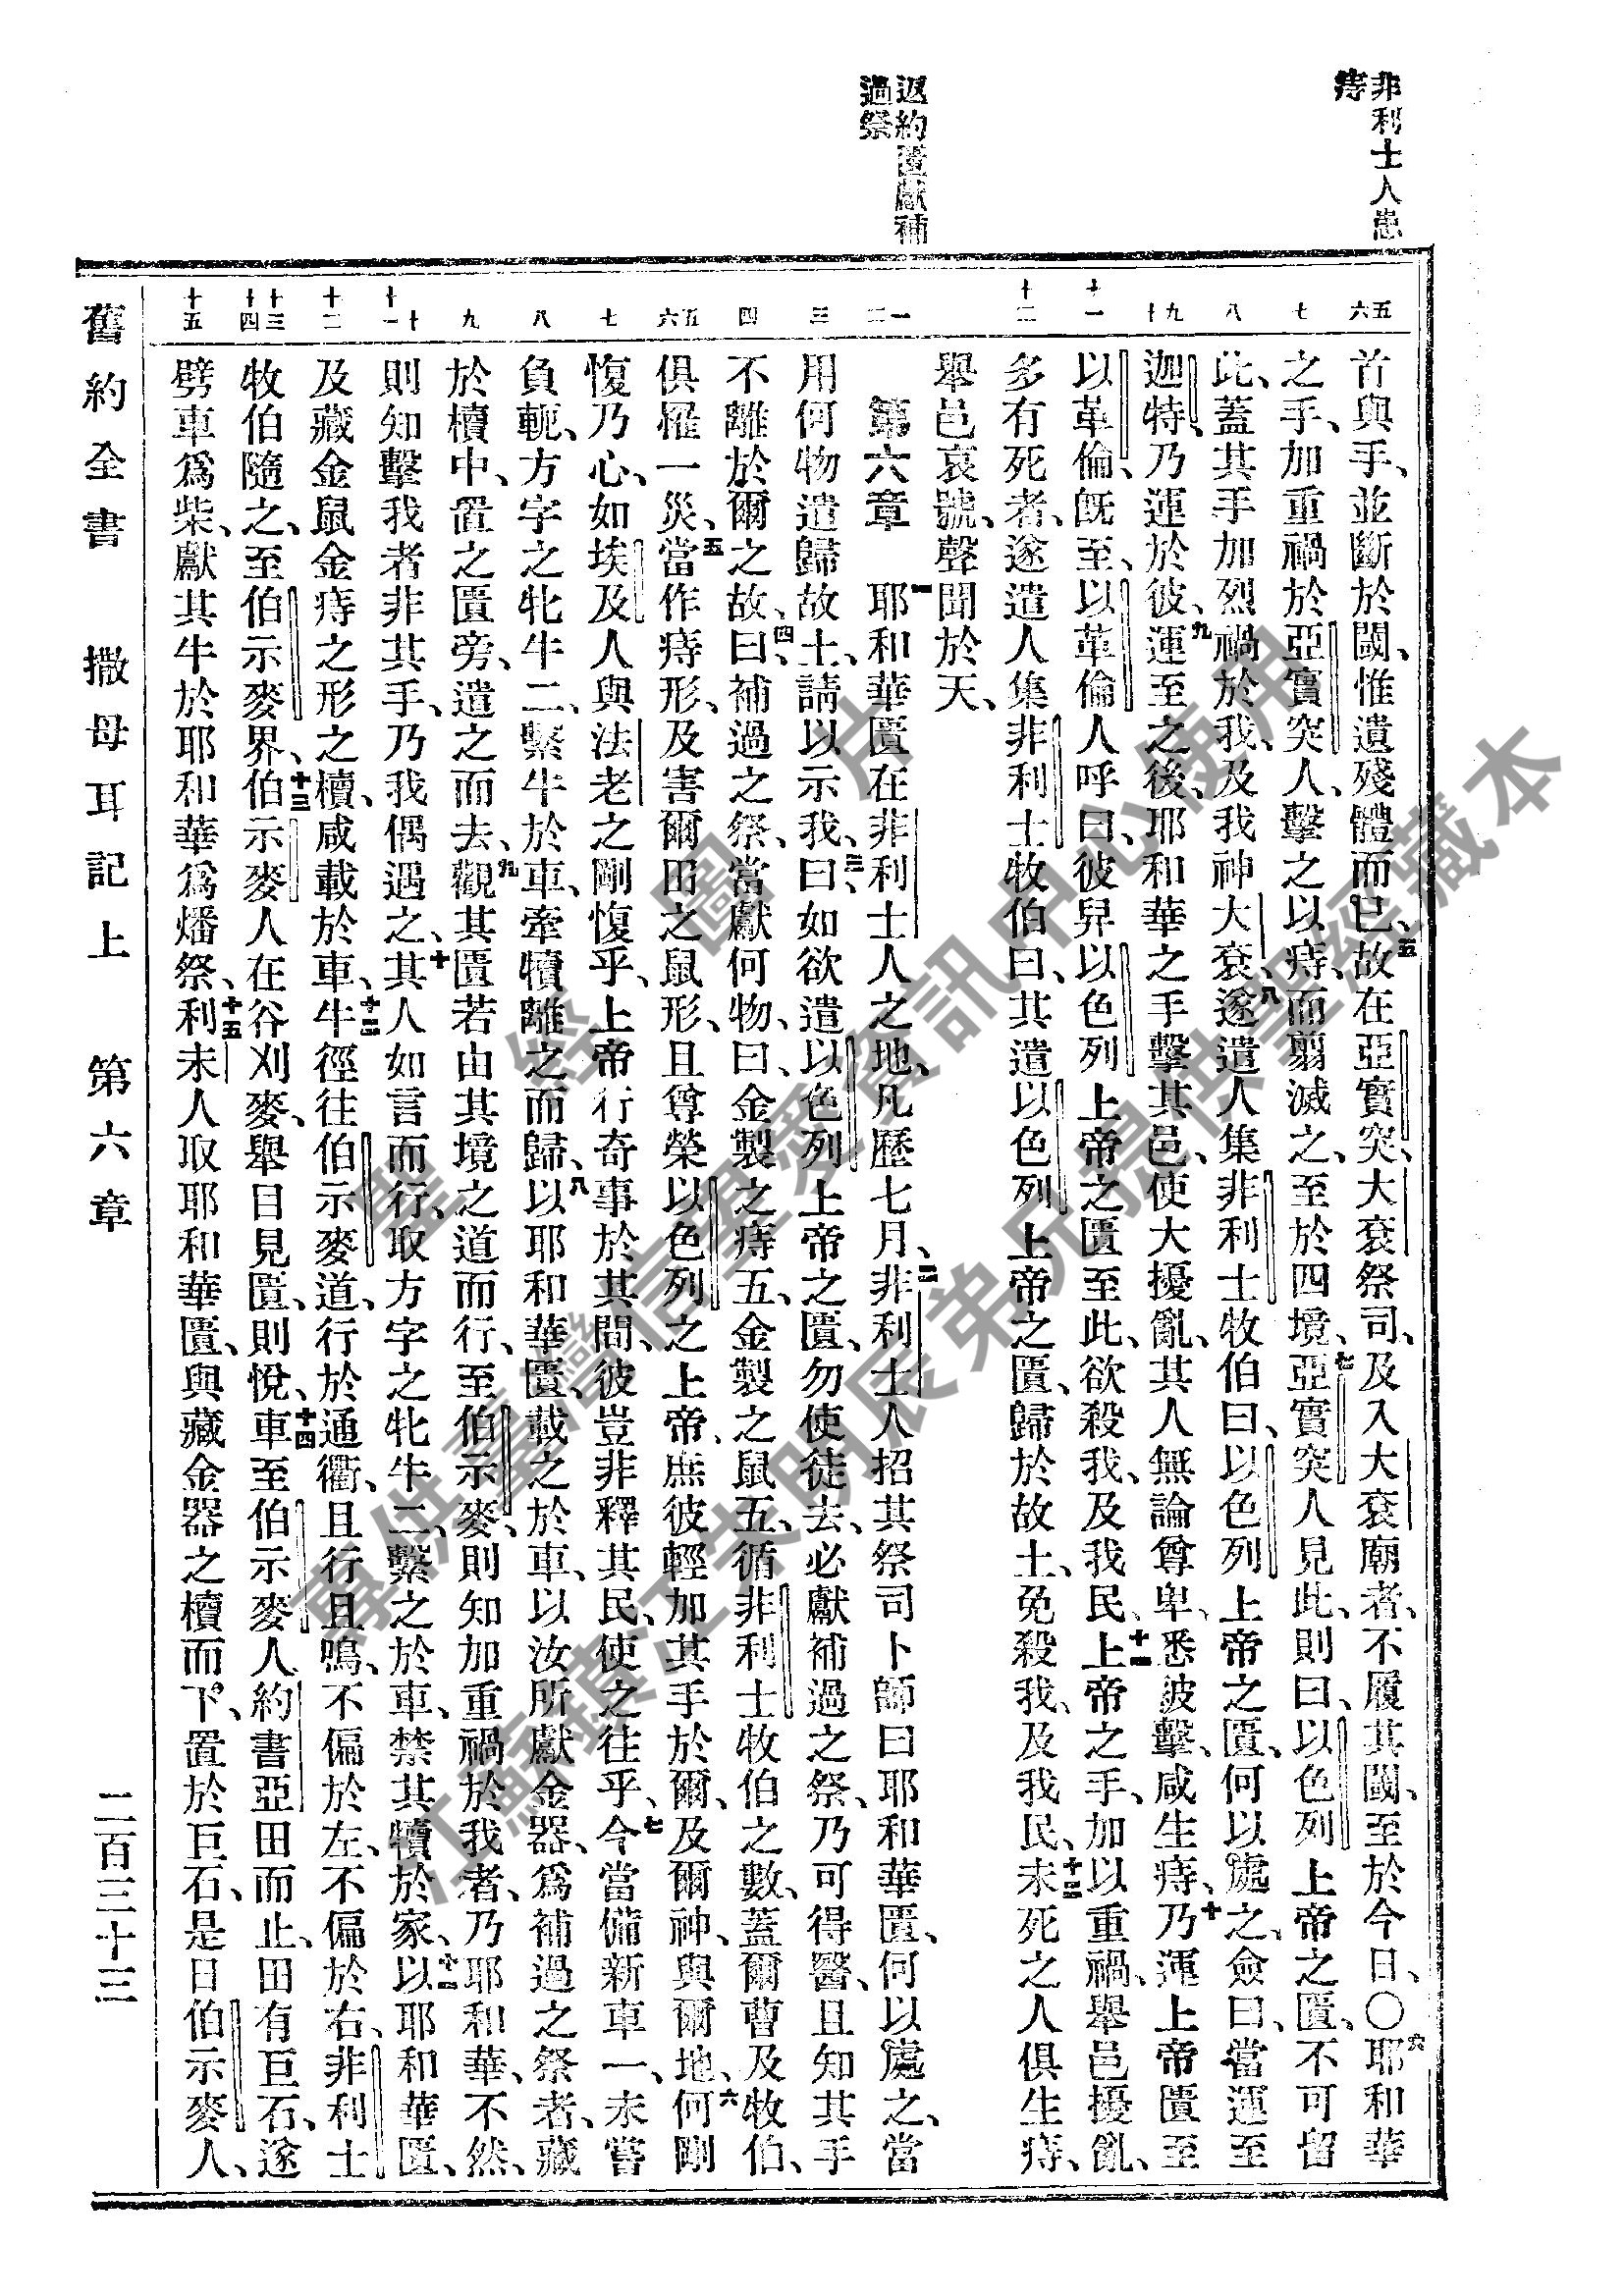 非利士人患
痔
返約匱獻補
過祭
五
六
七
八
九
十
十一
十二
一
二
三
四
五
六
七
八
九
十
十一
十二
十三
十四
十五
首與手、並斷於閾、惟遺殘體而已、五故在亞實突、大袞祭司、及入大袞廟者、不履其閾、至於今日、○六耶和華
之手、加重禍於亞實突人、擊之以痔、而翦滅之、至於四境、七亞實突人見此、則曰、以色列上帝之匱、不可留
此、蓋其手加烈禍於我、及我神大袞、八遂遣人集非利士牧伯曰、以色列上帝之匱、何以處之、僉曰、當運至
迦特、乃運於彼、九運至之後、耶和華之手擊其邑、使大擾亂、其人無論尊卑、悉被擊、咸生痔、十乃運上帝匱至
以革倫、既至、以革倫人呼曰、彼舁以色列上帝之匱至此、欲殺我、及我民、十一上帝之手、加以重禍、舉邑擾亂、
多有死者、遂遣人集非利士牧伯曰、其遣以色列上帝之匱、歸於故土、免殺我、及我民、十二未死之人俱生痔、
舉邑哀號、聲聞於天、
第六章 一耶和華匱在非利士人之地、凡歷七月、二非利士人招其祭司卜師曰耶和華匱、何以處之、當
用何物遣歸故土、請以示我、三曰、如欲遣以色列上帝之匱、勿使徒去、必獻補過之祭、乃可得醫、且知其手
不離於爾之故、四曰、補過之祭、當獻何物、曰、金製之痔五、金製之鼠五、循非利士牧伯之數、蓋爾曹及牧伯、
俱罹一災、五當作痔形、及害爾田之鼠形、且尊榮以色列之上帝、庶彼輕加其手於爾、及爾神、與爾地、六何剛
愎乃心、如埃及人與法老之剛愎乎、上帝行奇事於其間、彼豈非釋其民、使之往乎、七今當備新車一、未嘗
負軛、方字之牝牛二、繫牛於車、牽犢離之而歸、八以耶和華匱、載之於車、以汝所獻金器、爲補過之祭者、藏
於櫝中、置之匱旁、遣之而去、九觀其匱若由其境之道而行、至伯示麥、則知加重禍於我者、乃耶和華、不然、
則知擊我者非其手、乃我偶遇之、十其人如言而行、取方字之牝牛二、繫之於車、禁其犢於家、十一以耶和華匱、
及藏金鼠金痔之形之櫝、咸載於車、十二牛徑往伯示麥道、行於通衢、且行且鳴、不偏於左、不偏於右、非利士
牧伯隨之、至伯示麥界、十三伯示麥人在谷刈麥、舉目見匱、則悅、十四車至伯示麥人約書亞田而止、田有巨石、遂
劈車爲柴、獻其牛於耶和華爲燔祭、十五利未人取耶和華匱、與藏金器之櫝而下、置於巨石、是日伯示麥人、
舊約全書 撒母耳記上 第六章 二百三十三
聖經圖片
專供臺灣信望愛資訊中心使用
江蘇鎮江朱明辰弟兄提供聖經藏本